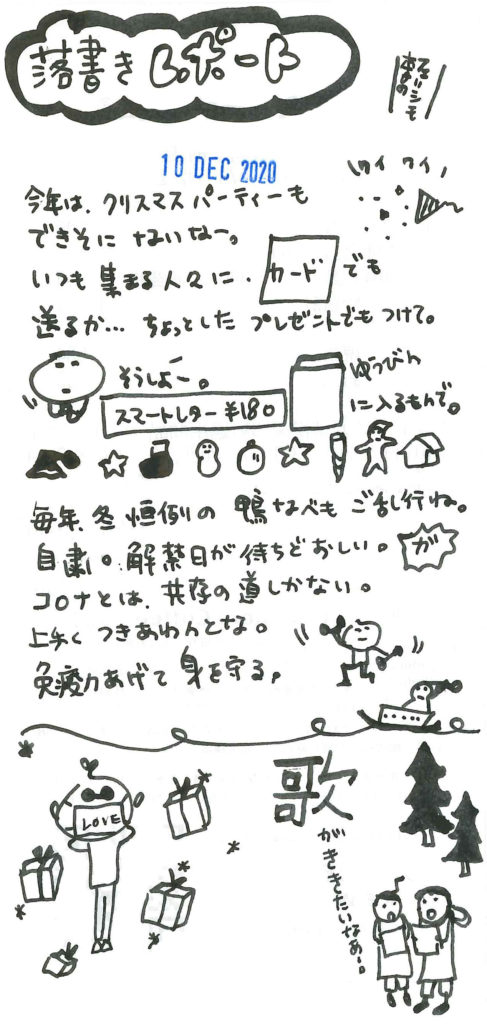 落書きレポート
10 DEC 2020
ワイ ワイ
今年は、クリスマスパーティーも
できそにないなー。
いつも集まる人々に、カードでも
送るか…ちょっとしたプレゼントでもつけて。
そうしよー。
スマートレター¥180
ゆうびん
に入るもんで。
毎年、冬恒例の鴨なべもご乱行ね。
自粛。解禁日が待ちどおしい。が
コロナとは、共存の道しかない。
上手くつきあわんとな。
免疫力あげて身を守る。
LOVE
歌
がききたいなぁー。